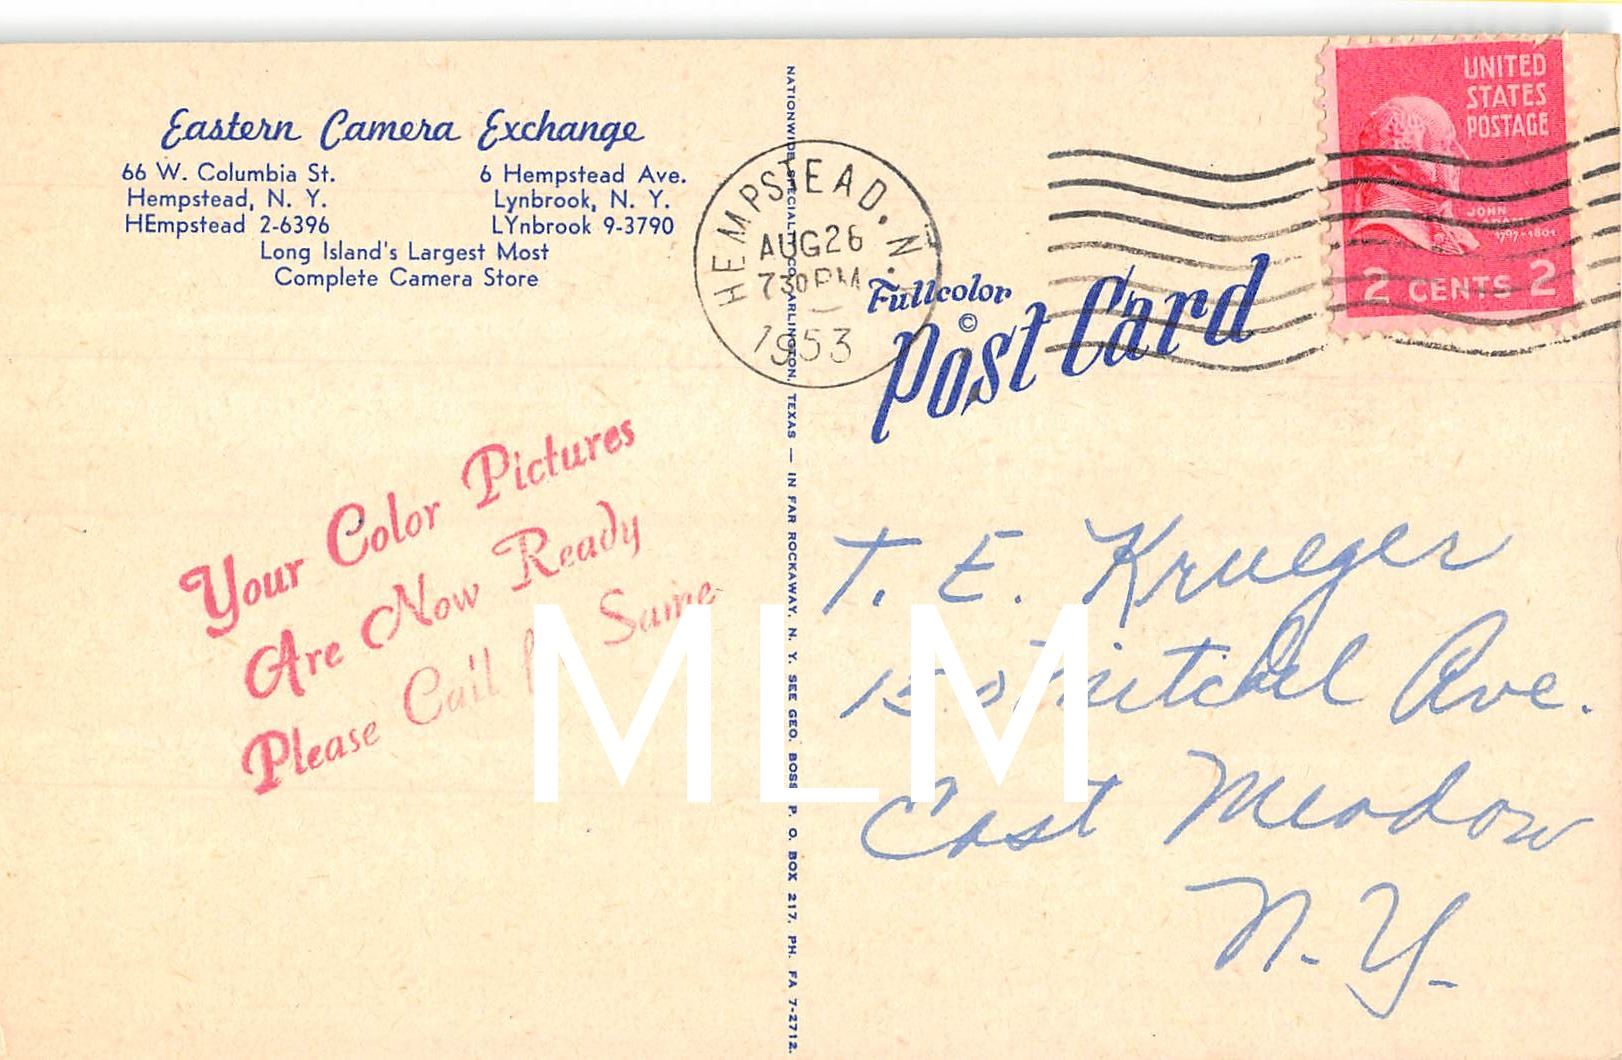 Eastern Camera Exchange
66 W. Columbia St.
Hempstead, N. Y.
HEmpstead 2-6396
6 Hempstead Ave.
Lynbrook, N. Y.
LYnbrook 9-3790
Long Island's Largest Most
Complete Camera Store
Your Color Pictures
Are Now Ready
Please Call Same
NATIONWIDE SPECIALTY CO. ARLINGTON, TEXAS — IN FAR ROCKAWAY, N. Y. SEE GEO. BOSS P. O. BOX 217, PH. FA 7-2712.
HEMPSTEAD, N.
AUG 26
730 PM
1953
Fullcolor
©
Post Card
UNITED
STATES
POSTAGE
JOHN
ADAMS
1797-1801
2 CENTS 2
T. E. Krueger
Mitchel Ave.
East Meadow
N. Y.
MLM